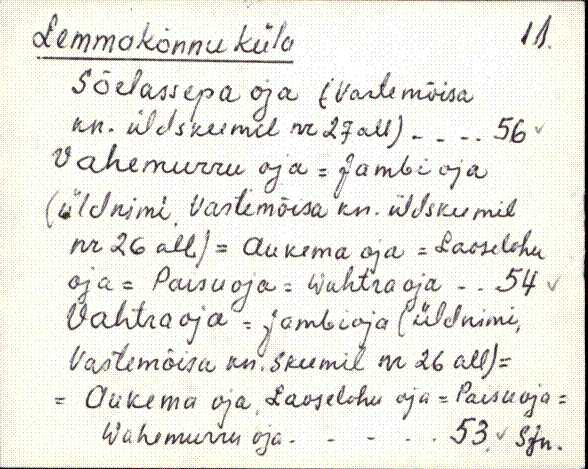 Lemmakõnnu küla 11.
Sõelassepa oja (Vastemõisa
kn. üldskeemil nr 27 all) . . . . 56 ✓
Vahemurru oja = Jambi oja
(üldnimi, Vastemõisa kn. üldskeemil
nr 26 all) = Aukema oja = Laoselohu
oja = Paisuoja = Wahtra oja . . 54 ✓
Vahtra oja = Jambi oja (üldnimi,
Vastemõisa kn. skeemil nr 26 all) =
= Aukema oja, Laoselohu oja = Paisuoja =
Wahemurru oja . . . . . 53 ✓